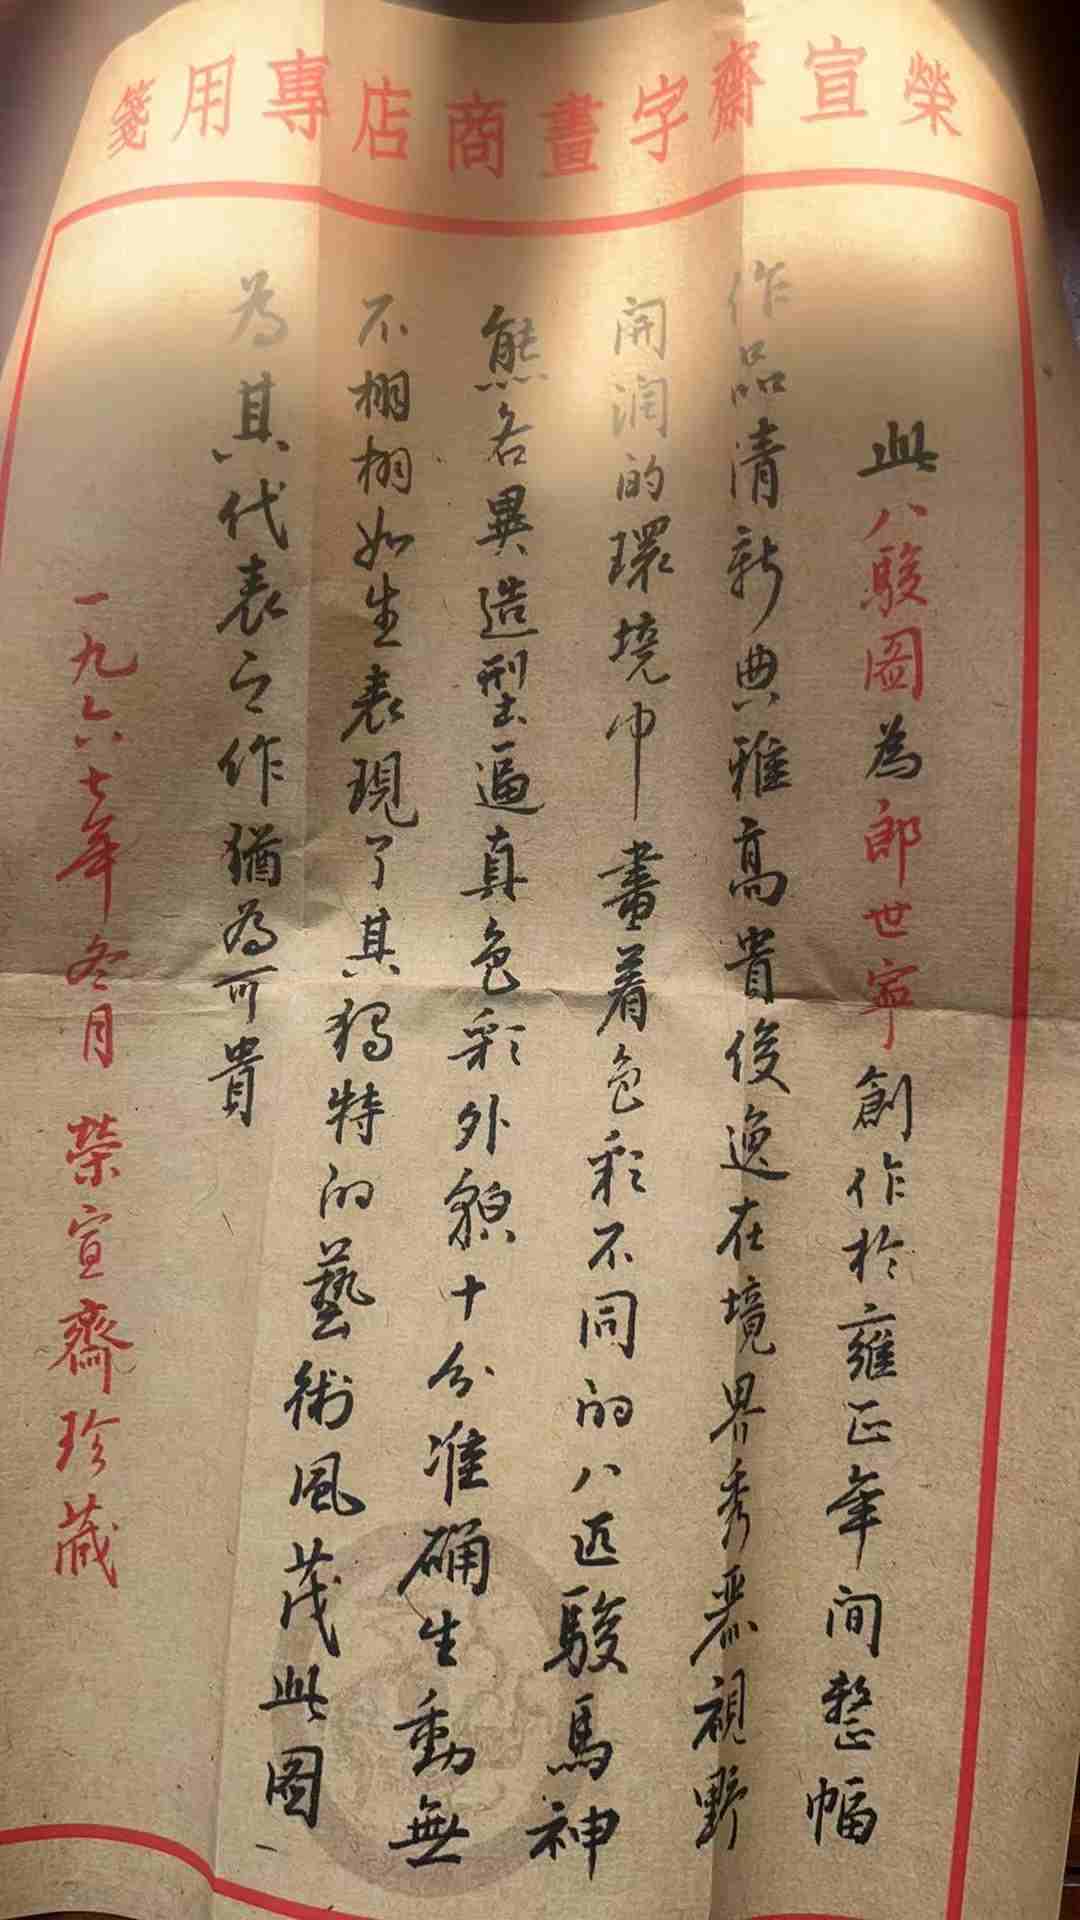 榮宣齋字畫商店專用箋
此八駿圖為郎世寧創作於雍正年間整幅
作品清新典雅高貴俊逸在境界秀麗視野
開潤的環境中畫着色彩不同的八匹駿馬神
熊各異造型逼真色彩外貌十分准确生動無
不栩栩如生表現了其獨特的藝術風茂此圖
為其代表之作猶為可貴
一九六七年冬月榮宣齋珍藏